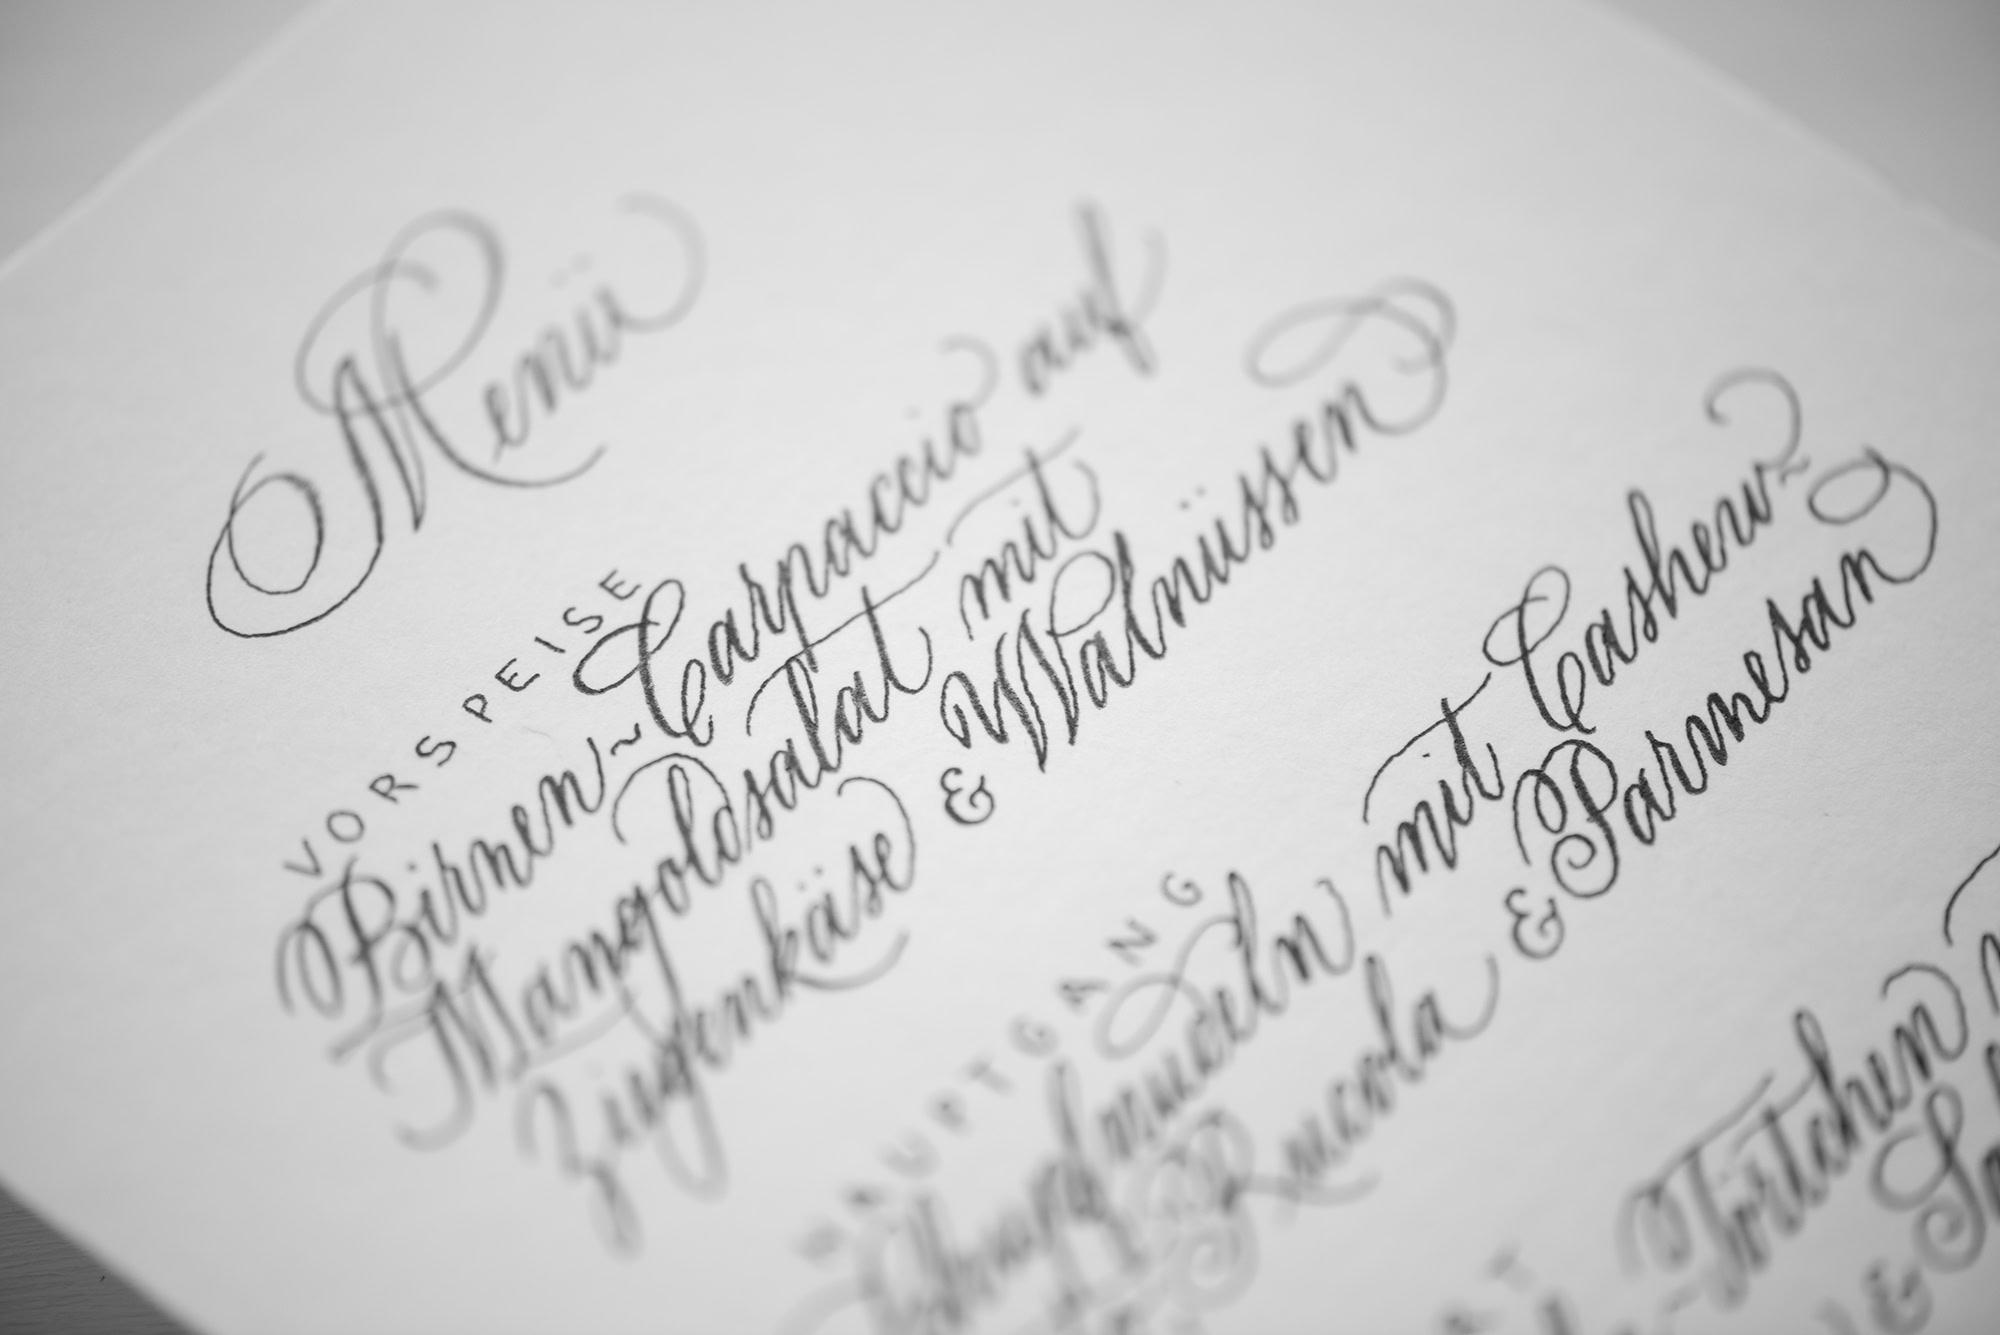 Menü
VORSPEISE
Birnen~Carpaccio auf
Mangoldsalat mit
Ziegenkäse & Walnüssen
HAUPTGANG
mit Cashew~
Rucola & Parmesan
Törtchen
&